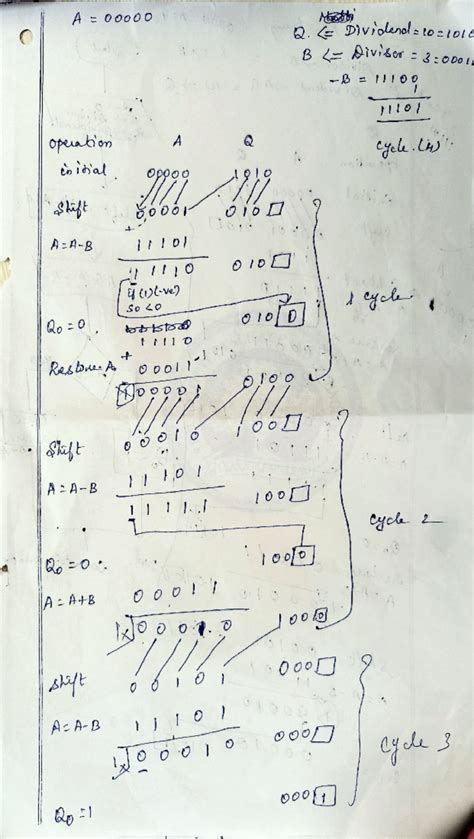 A = 00000
Q <= Dividend = 10 = 1010
B <= Divisor = 3 = 00011
-B = 11100
1
11101
cycle (4)
operation A Q
initial 00000 1010
Shift 00001 010□
A=A-B + 11101
11110 010□
if (1)(-ve)
so <0
1 cycle
Q₀=0 010 0
11110
Restore A + 00011
1 00001 0100
Shift 00010 100□
A=A-B 11101
11111 100□
cycle 2
Q₀=0 100 0
A=A+B 00011
1 00010 100 0
Shift 00101 000□
A=A-B 11101 000□
1 00010
cycle 3
Q₀=1 000 1